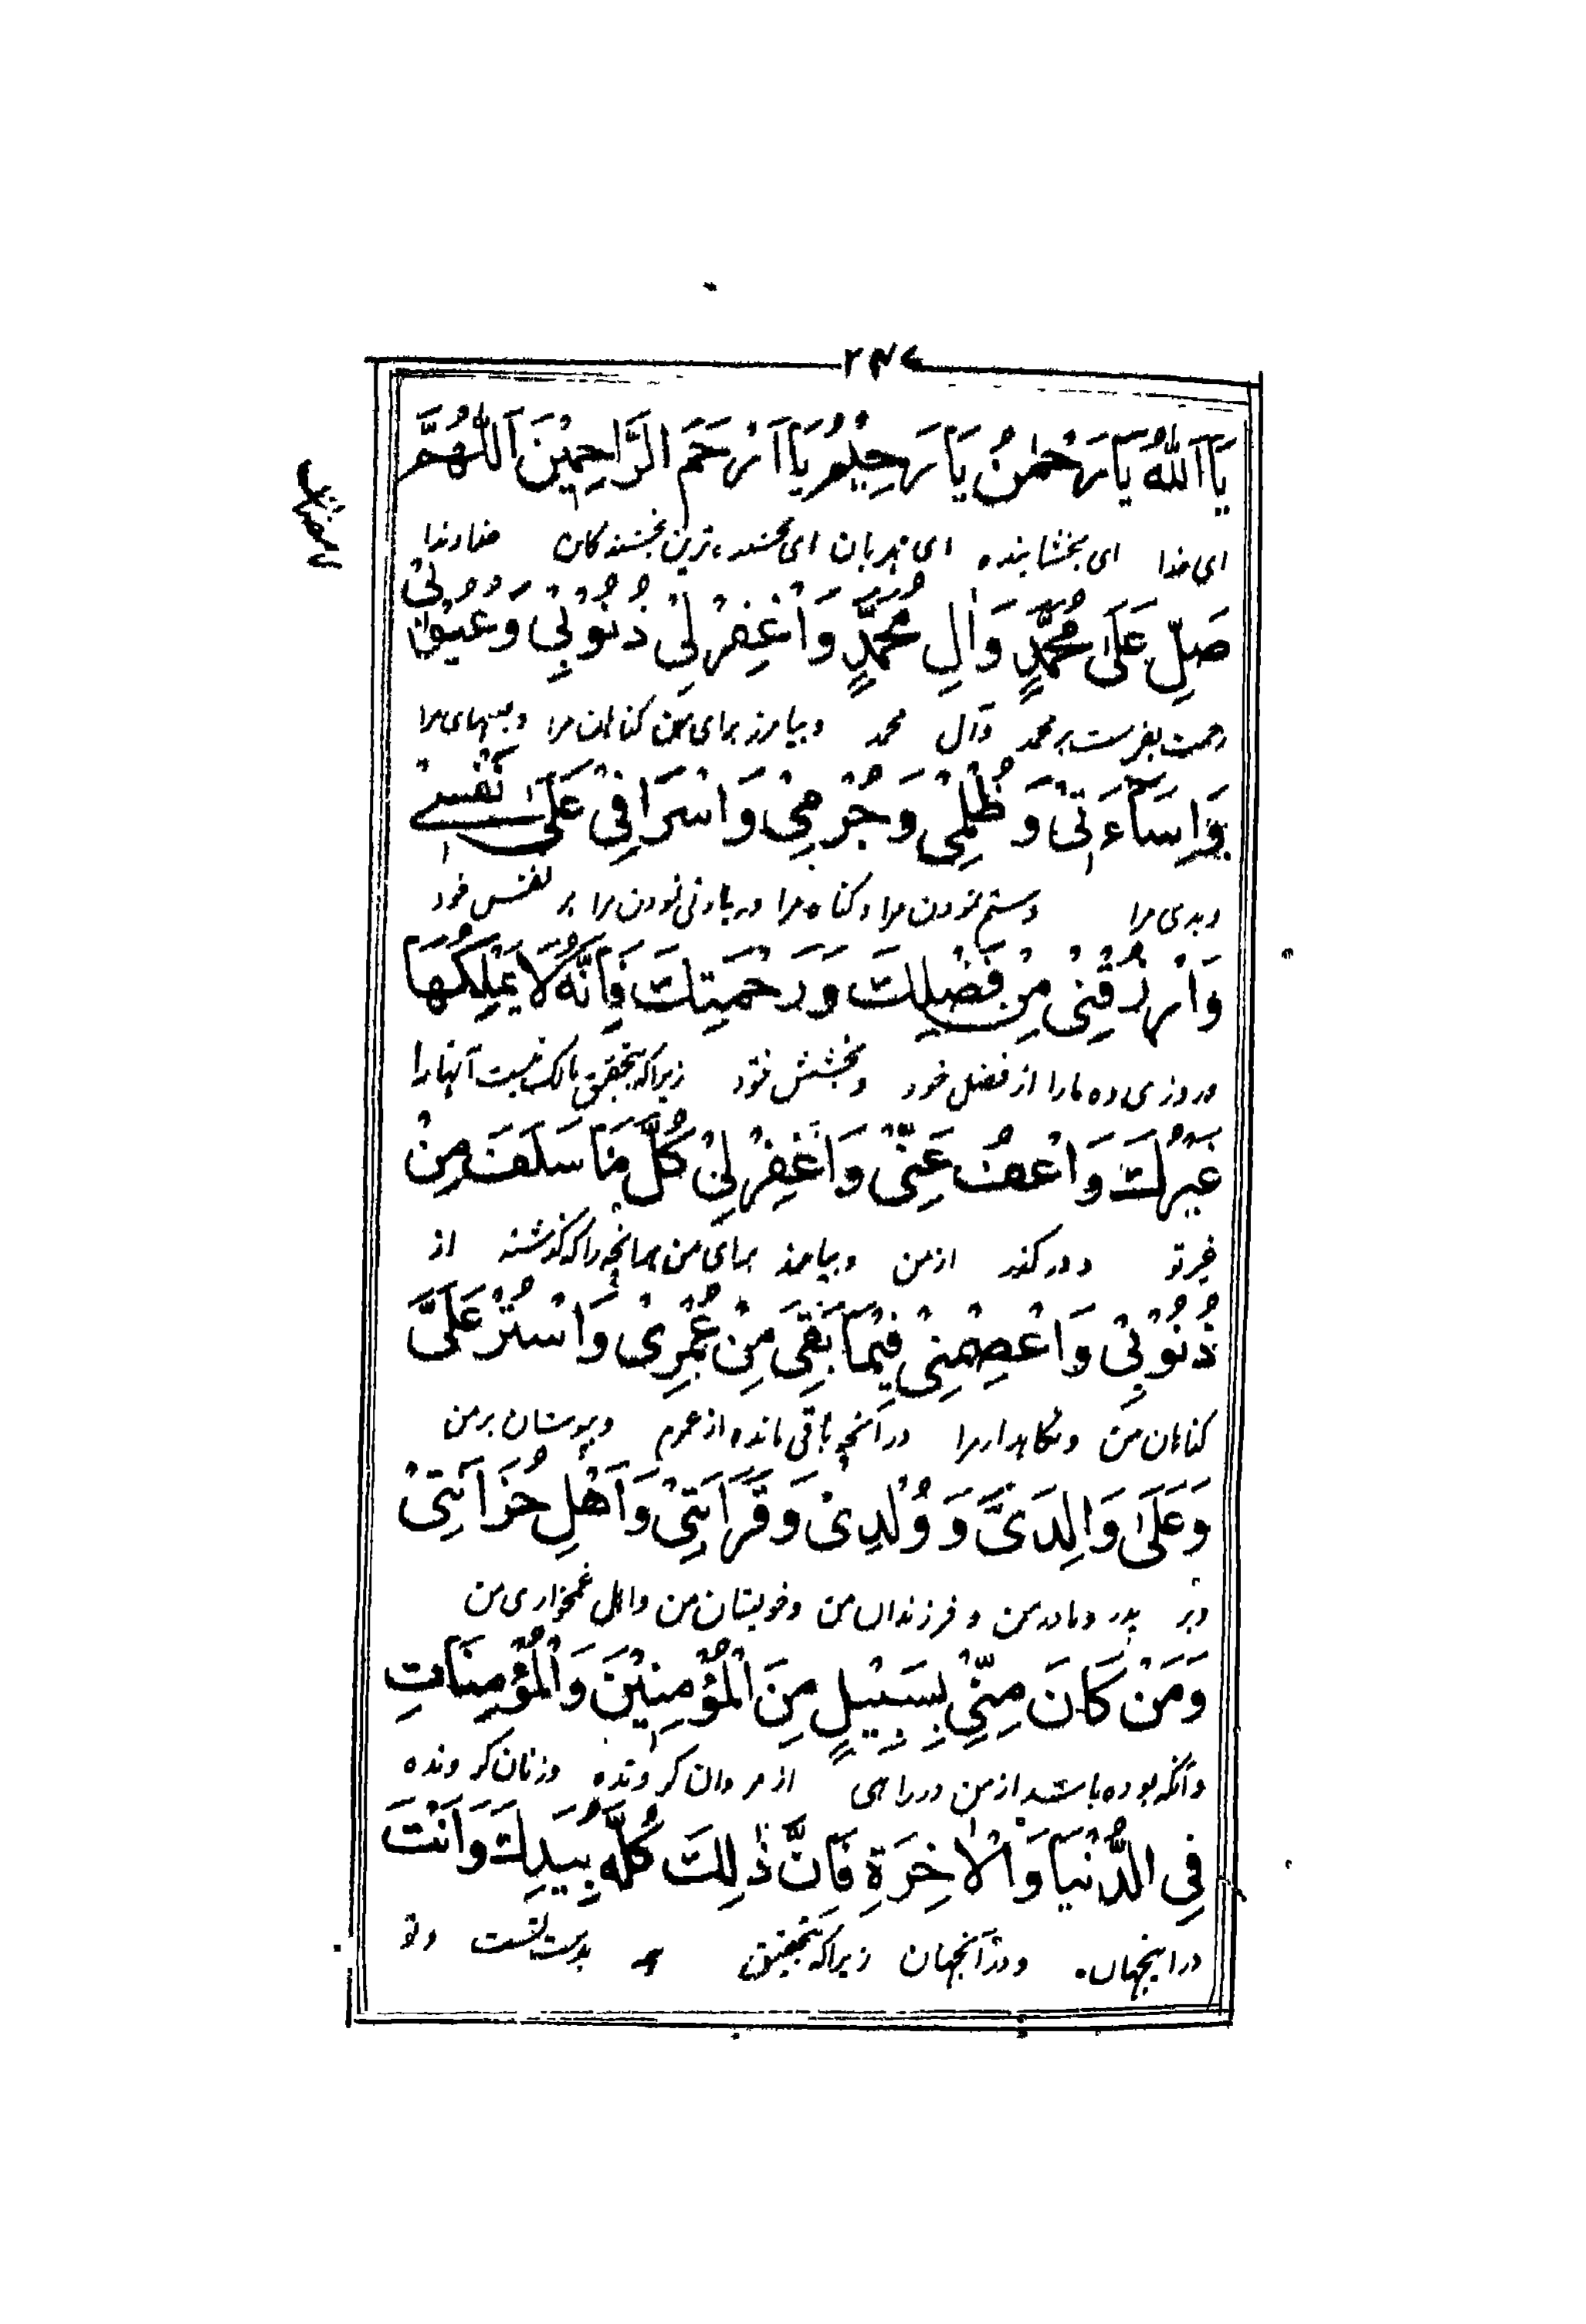 يَا اَللّٰهُ يَا رَحْمٰنُ يَا رَحِيْمُ يَا اَرْحَمَ الرَّاحِمِيْنَ اَللّٰهُمَّ
ای خدا ای بخشاینده ای مهربان ای بخشنده ترین بخشندکان خداوندا
صَلِّ عَلٰى مُحَمَّدٍ وَاٰلِ مُحَمَّدٍ وَاغْفِرْ لِيْ ذُنُوْبِيْ وَعُيُوْبِيْ
رحمت بفرست بر محمد وآل محمد وبیامرز برای من کناهان مرا وعیبهای مرا
وَاِسَآءَتِيْ وَظُلْمِيْ وَجُرْمِيْ وَاِسْرَافِيْ عَلٰى نَفْسِيْ
وبدی مرا وستم نمودن مرا وکناه مرا وزیادتی نمودن مرا بر نفس خود
وَارْزُقْنِيْ مِنْ فَضْلِكَ وَرَحْمَتِكَ فَاِنَّهٗ لَا يَمْلِكُهَا
وروزی ده مارا از فضل خود وبخشش خود زیراکه بتحقیق مالک نیست آنهارا
غَيْرُكَ وَاعْفُ عَنِّيْ وَاغْفِرْ لِيْ كُلَّ مَا سَلَفَ مِنْ
غیر تو ودر کذر از من وبیامرز برای من همه آنچه را که کذشته از
ذُنُوْبِيْ وَاعْصِمْنِيْ فِيْمَا بَقِيَ مِنْ عُمْرِيْ وَاسْتُرْ عَلَيَّ
کناهان من ونکاهدار مرا در آنچه باقی مانده از عمرم وبپوشان بر من
وَعَلٰى وَالِدَيَّ وَوُلْدِيْ وَقَرَابَتِيْ وَاَهْلِ حُزَانَتِيْ
وبر پدر ومادر من وفرزندان من وخویشان من واهل غمخواری من
وَمَنْ كَانَ مِنِّيْ بِسَبِيْلٍ مِنَ الْمُؤْمِنِيْنَ وَالْمُؤْمِنَاتِ
وآنکه بوده باشد از من در راهی از مردان کرونده وزنان کرونده
فِي الدُّنْيَا وَالْاٰخِرَةِ فَاِنَّ ذٰلِكَ كُلَّهٗ بِيَدِكَ وَاَنْتَ
در اینجهان ودر آنجهان زیراکه بتحقیق بدست تست وتو